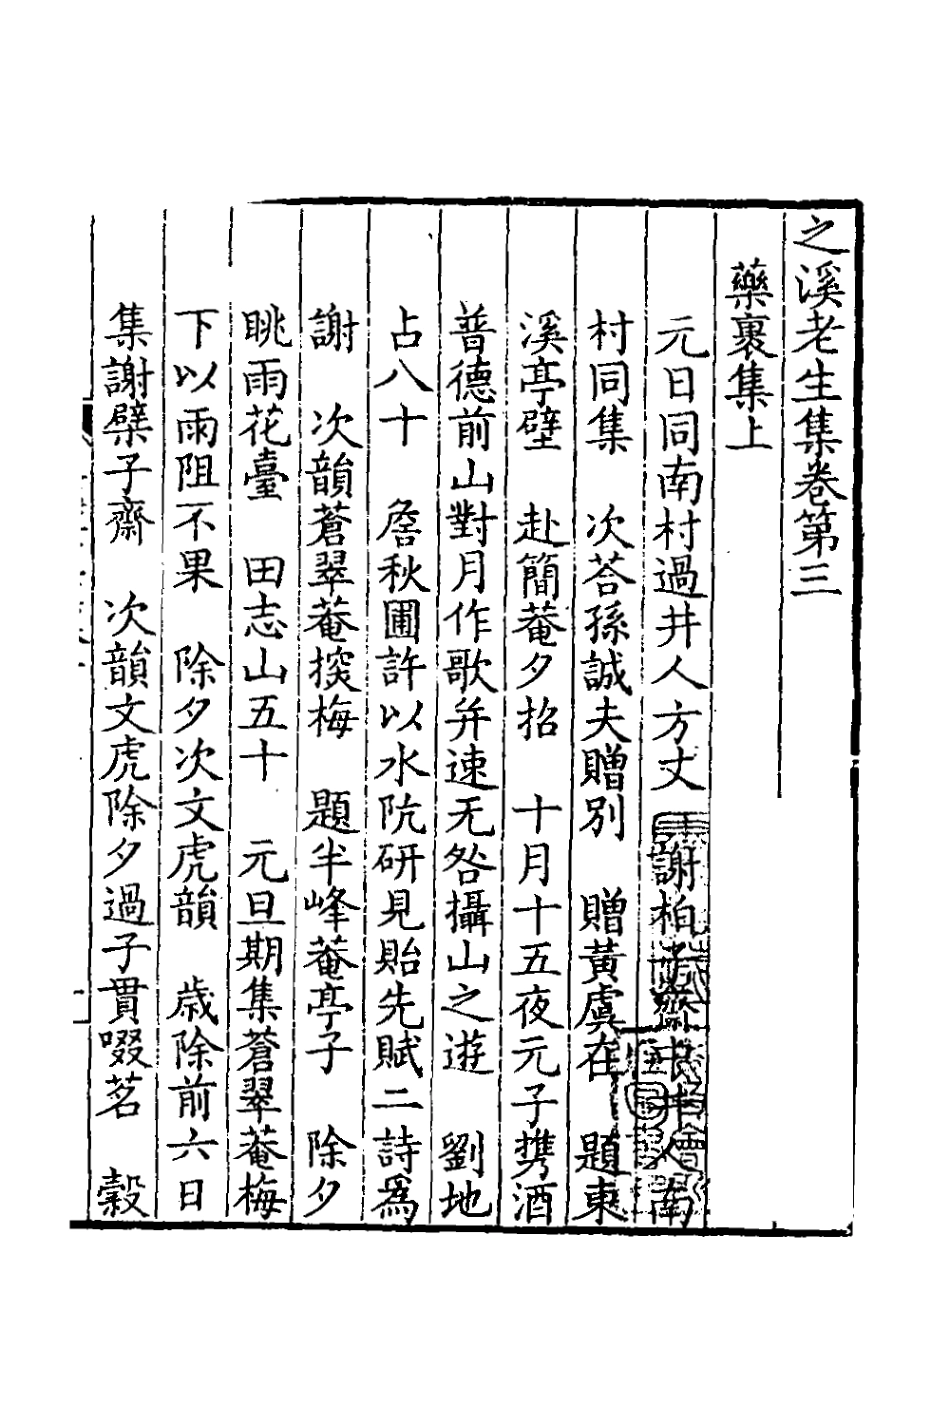 之溪老生集卷第三
藥裹集上
元日同南村過井人方丈　謝柏子齋　井人南
村同集　次荅孫誠夫贈別　贈黃虞在　題東
溪亭壁　赴簡菴夕招　十月十五夜元子攜酒
普德前山對月作歌并速无咎攝山之遊　劉地
占八十　詹秋圃許以水阬研見貽先賦二詩爲
謝　次韻蒼翠菴探梅　題半峰菴亭子　除夕
眺雨花臺　田志山五十　元旦期集蒼翠菴梅
下以雨阻不果　除夕次文虎韻　歲除前六日
集謝檗子齋　次韻文虎除夕過子貫啜茗　穀